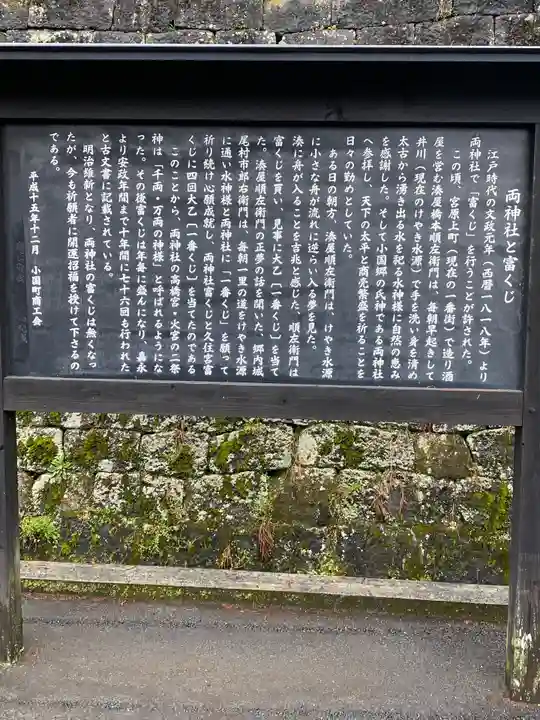 両神社と富くじ
江戸時代の文政元年(西暦一八一八年)より
両神社で「富くじ」を行うことが許された。
この頃、宮原上町(現在の一番街)で造り酒
屋を営む湊屋橋本順左衛門は、毎朝早起きして
井川(現在のけやき水源)で手を洗い身を清め
太古から湧き出る水を祀る水神様に自然の恵み
を感謝した。そして小国郷の氏神である両神社
へ参拝し、天下の太平と商売繁盛を祈ることを
日々の勤めとしていた。
ある日の朝方、湊屋順左衛門は、けやき水源
に小さな舟が流れに逆らい入る夢を見た。
湊に舟が入ることを吉兆と感じた、順左衛門は
富くじを買い、見事に大乙〔一番くじ〕を当て
た。湊屋順左衛門の正夢の話を聞いた、郷内城
尾村市郎右衛門は、毎朝一里の道をけやき水源
に通い水神様と両神社に「一番くじ」を願って
祈り続け心願成就し、両神社富くじと久住宮富
くじに四回大乙〔一番くじ〕を当てたのである
このことから、両神社の高橋宮・火宮の二祭
神は「千両・万両の神様」と呼ばれるようにな
った。その後富くじは年毎に盛んになり、嘉永
より安政年間まで十年間に七十六回も行われた
と古文書に記載されている。
明治維新となり、両神社の富くじは無くなっ
たが、今も祈願者に開運招福を授けて下さるの
である。
平成十五年十二月 小国町商工会